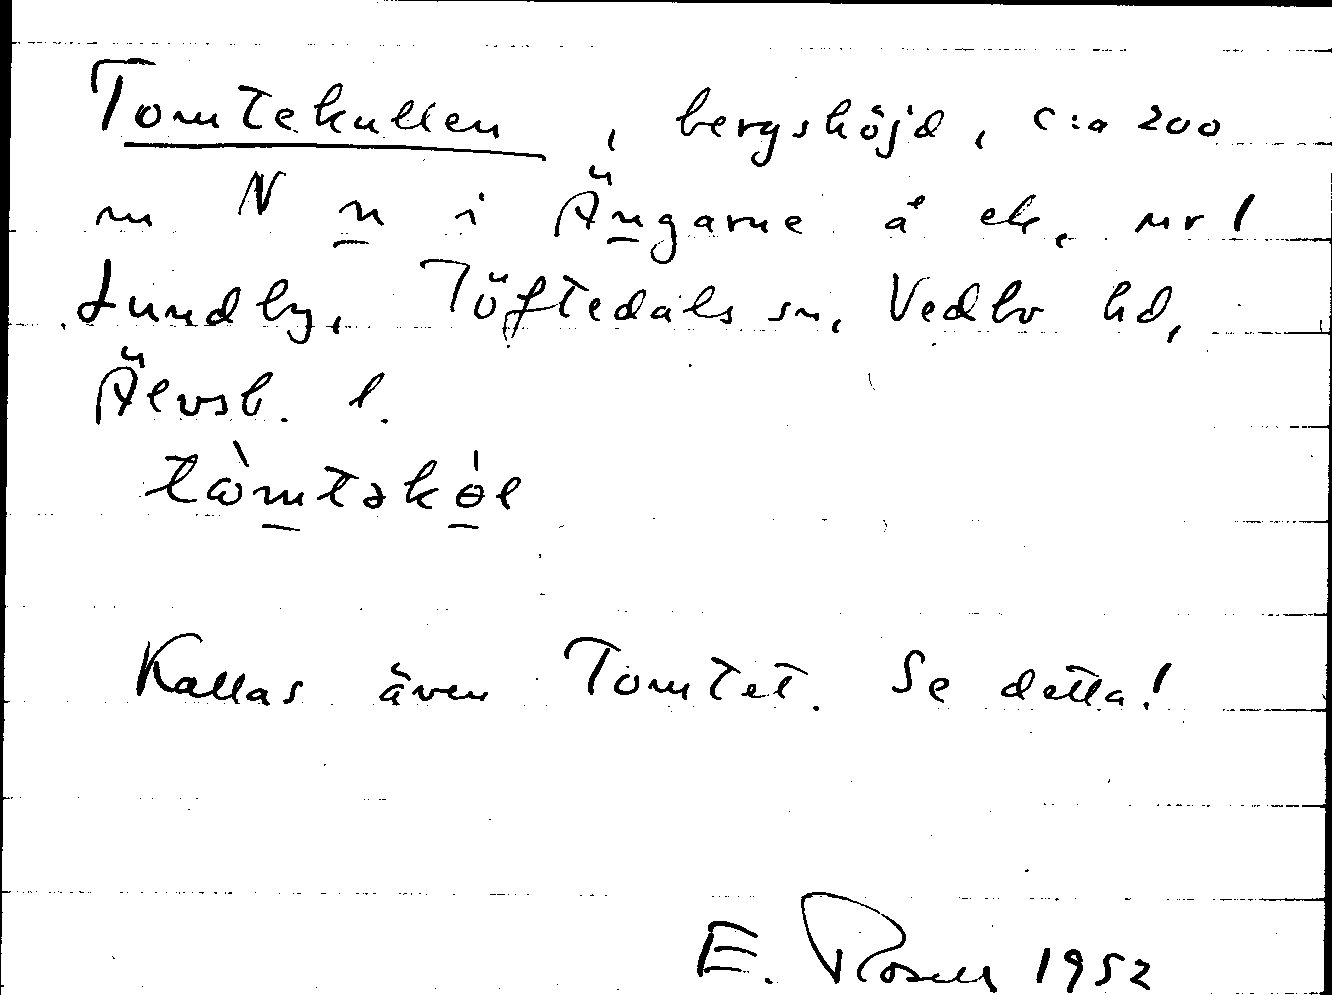 Tomtekullen, bergshöjd, c:a 200
m N n i Ängarne å ek. nr 1
Lundby, Töftedals sn, Vedbo hd,
Älvsb. l.
tòmtəkɵ̀l
Kallas även Tomtet. Se detta!
E. Rosell 1952